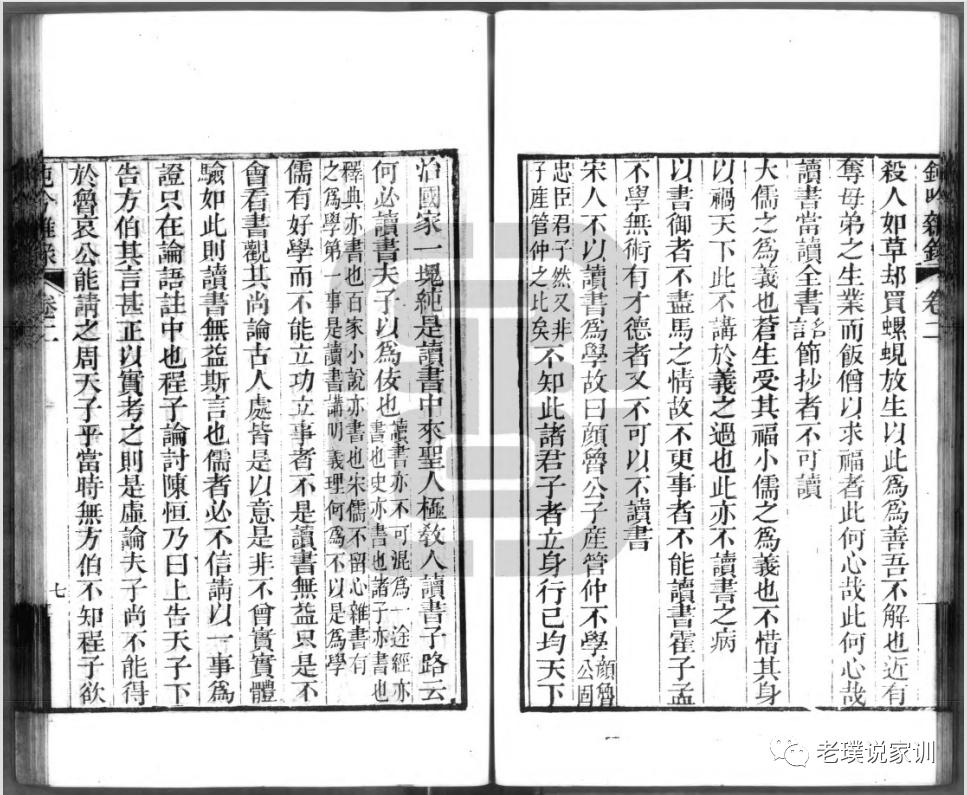 鈍吟雜錄 卷二
殺人如草却買螺蜆放生以此為為善吾不解也近有
奪母弟之生業而飯僧以求福者此何心哉此何心哉
讀書當讀全書節抄者不可讀
大儒之為義也蒼生受其福小儒之為義也不惜其身
以禍天下此不講於義之過也此亦不讀書之病
以書御者不盡馬之情故不更事者不能讀書霍子孟
不學無術有才德者又不可以不讀書
宋人不以讀書為學故曰顏魯公子產管仲不學顏魯公固
忠臣君子然又非子產管仲之比矣不知此諸君子者立身行已均天下
治國家一塊純是讀書中來聖人極教人讀書子路云
何必讀書夫子以為佞也讀書亦不可混為一途經亦書也史亦書也諸子亦書也
釋典亦書也百家小說亦書也宋儒不留心雜書有之為學第一事是讀書講明義理何為不以是為學
儒有好學而不能立功立事者不是讀書無益只是不
會看書觀其尚論古人處皆是以意是非不曾實實體
驗如此則讀書無益斯言也儒者必不信請以一事為
證只在論語註中也程子論討陳恒乃曰上告天子下
告方伯其言甚正以實考之則是虛論夫子尚不能得
於魯哀公能請之周天子乎當時無方伯不知程子欲
鈍吟雜錄 卷二 七
老璞说家训